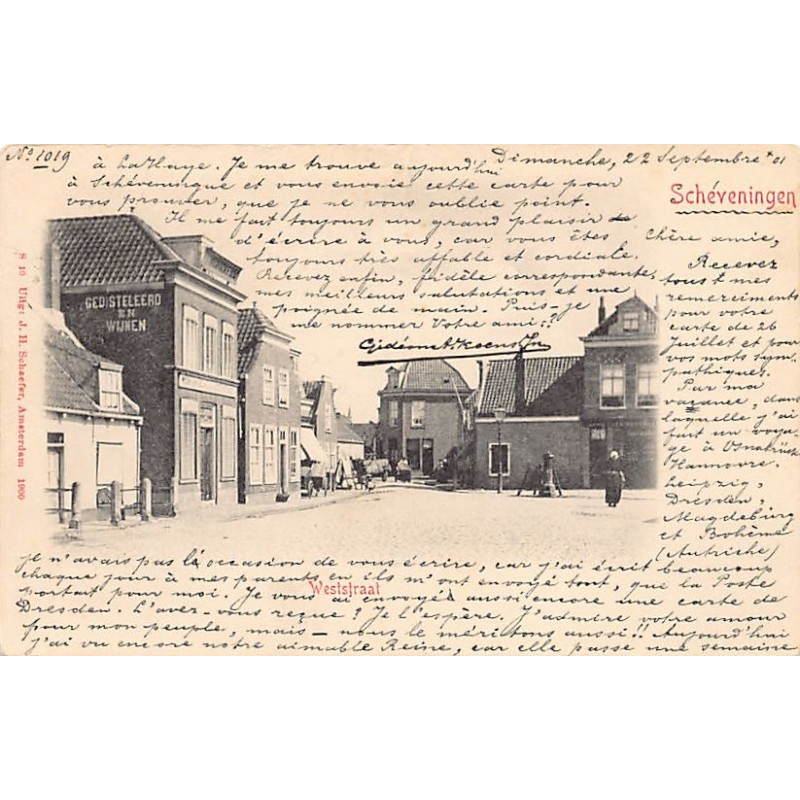 No 1019
Dimanche, 22 Septembre '01
Schéveningen
Chère amie,
Recevez
tous t mes
remerciments
pour votre
carte de 26
Juillet et pour
vos mots sym-
pathiques.
Par ma
vacance, dans
laquelle j'ai
fait un voya-
ge à Osnabrück
Hannovre,
Leipzig,
Dresden,
Magdeburg
et Bohème
(Autriche)
je n'avais pas l'occasion de vous écrire, car j'ai écrit beaucoup
chaque jour à mes parents en ils m'ont envoyé tout, que la Poste
portait pour moi. Je vous ai envoyé aussi encore une carte de
Dresden. L'avez-vous reçue? Je l'espère. J'admire votre amour
pour mon peuple, mais — nous le méritons aussi!! Aujourd'hui
j'ai vu encore notre aimable Reine, car elle passe une semaine
à La Haye. Je me trouve aujourd'hui
à Schéveningue et vous envoie cette carte pour
vous prouver, que je ne vous oublie point.
Il me fait toujours un grand plaisir de
d'écrire à vous, car vous êtes
toujours très affable et cordiale.
Recevez enfin, fidèle correspondante,
mes meilleurs salutations et une
poignée de main. Puis-je
me nommer Votre ami??
GEDISTELEERD
EN
WIJNEN
Weststraat
S 10 Uitg: J. H. Schaefer, Amsterdam 1900